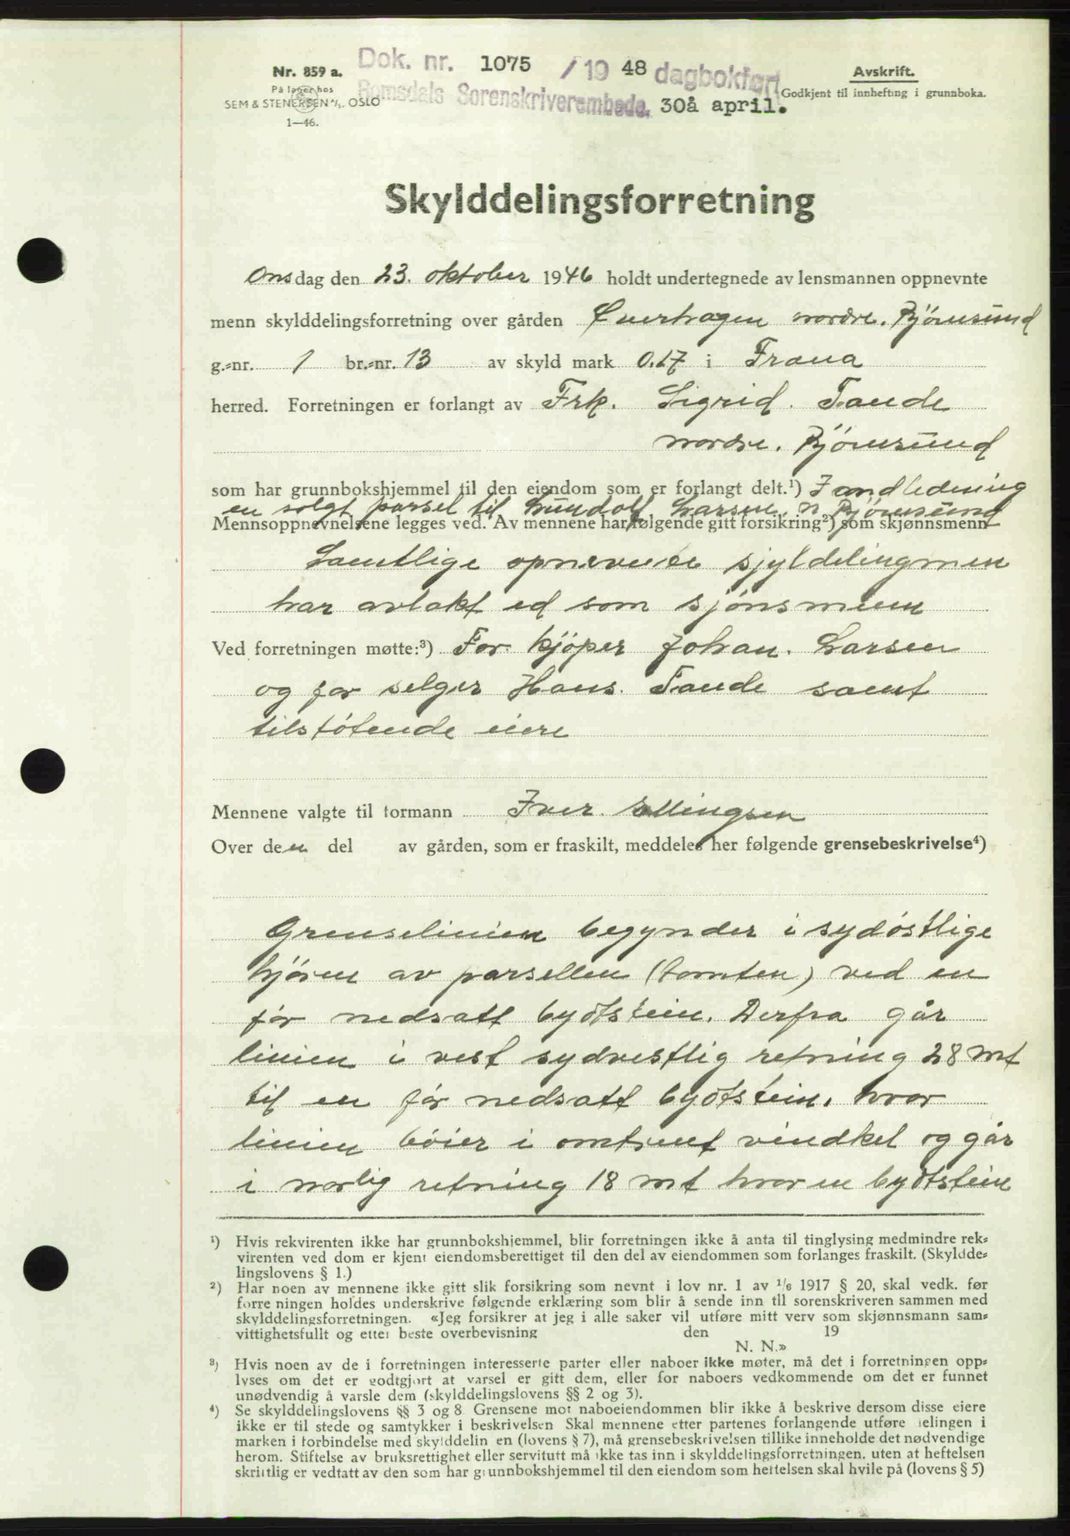 Nr. 859 a.
På lager hos
SEM & STENERSEN A/S, OSLO
1—46.
Dok. nr. 1075 / 19 48 dagbokført
Romsdals Sorenskriverembede, 30å april.
Avskrift.
Godkjent til innhefting i grunnboka.
Skylddelingsforretning
Onsdag den 23. oktober 1946 holdt undertegnede av lensmannen oppnevnte
menn skylddelingsforretning over gården Øverhagen nordre. Bjørnsund
g.-nr. 1 br.-nr. 13 av skyld mark 0.17 i Fræna
herred. Forretningen er forlangt av Frk. Sigrid. Tande
nordre. Bjørnsund
som har grunnbokshjemmel til den eiendom som er forlangt delt.¹) I andledning
en solgt parsel til Gundolf Larsen n Bjørnsund
Mennsoppnevnelsene legges ved. Av mennene har følgende gitt forsikring²) som skjønnsmenn
Samtlige opnevnte sjyldelingmen
har avlakt ed som sjønsmenn
Ved forretningen møtte:³) For kjøper Johan. Larsen
og for selger Hans. Tande samt
tilstøtende eiere
Mennene valgte til formann Iver Ellingsen
Over den del av gården, som er fraskilt, meddeles her følgende grensebeskrivelse⁴)
Grenselinien begynder i sydøstlige
hjørne av parsellen (tomten) ved en
før nedsatt bydtstein. Derfra går
linien i vest sydvestlig retning 28 mt
til en før nedsatt bydtstein, hvor
linien bøier i omtrent vindkel og går
i norlig retning 18 mt hvor en bydtstein
¹) Hvis rekvirenten ikke har grunnbokshjemmel, blir forretningen ikke å anta til tinglysing medmindre rek-
virenten ved dom er kjent eiendomsberettiget til den del av eiendommen som forlanges fraskilt. (Skyldde-
lingslovens § 1.)
²) Har noen av mennene ikke gitt slik forsikring som nevnt i lov nr. 1 av 1/6 1917 § 20, skal vedk. før
forretningen holdes underskrive følgende erklæring som blir å sende inn til sorenskriveren sammen med
skylddelingsforretningen. «Jeg forsikrer at jeg i alle saker vil utføre mitt verv som skjønnsmann sam-
vittighetsfullt og etter beste overbevisning den 19
N. N.»
³) Hvis noen av de i forretningen interesserte parter eller naboer ikke møter, må det i forretningen opp-
lyses om det er godtgjort at varsel er gitt dem, eller for naboers vedkommende om det er funnet
unødvendig å varsle dem (skylddelingslovens §§ 2 og 3).
⁴) Se skylddelingslovens §§ 3 og 8. Grensene mot naboeiendommen blir ikke å beskrive dersom disse eiere
ikke er til stede og samtykker i beskrivelsen Skal mennene etter partenes forlangende utføre delingen i
marken i forbindelse med skylddelingen (lovens § 7), må grensebeskrivelsen tillike inneholde det nødvendige
herom. Stiftelse av bruksrettighet eller servitutt må ikke tas inn i skylddelingsforretningen, uten at heftelsen
skriftlig er vedtatt av den som har grunnbokshjemmel til den eiendom som heftelsen skal hvile på (lovens § 5)